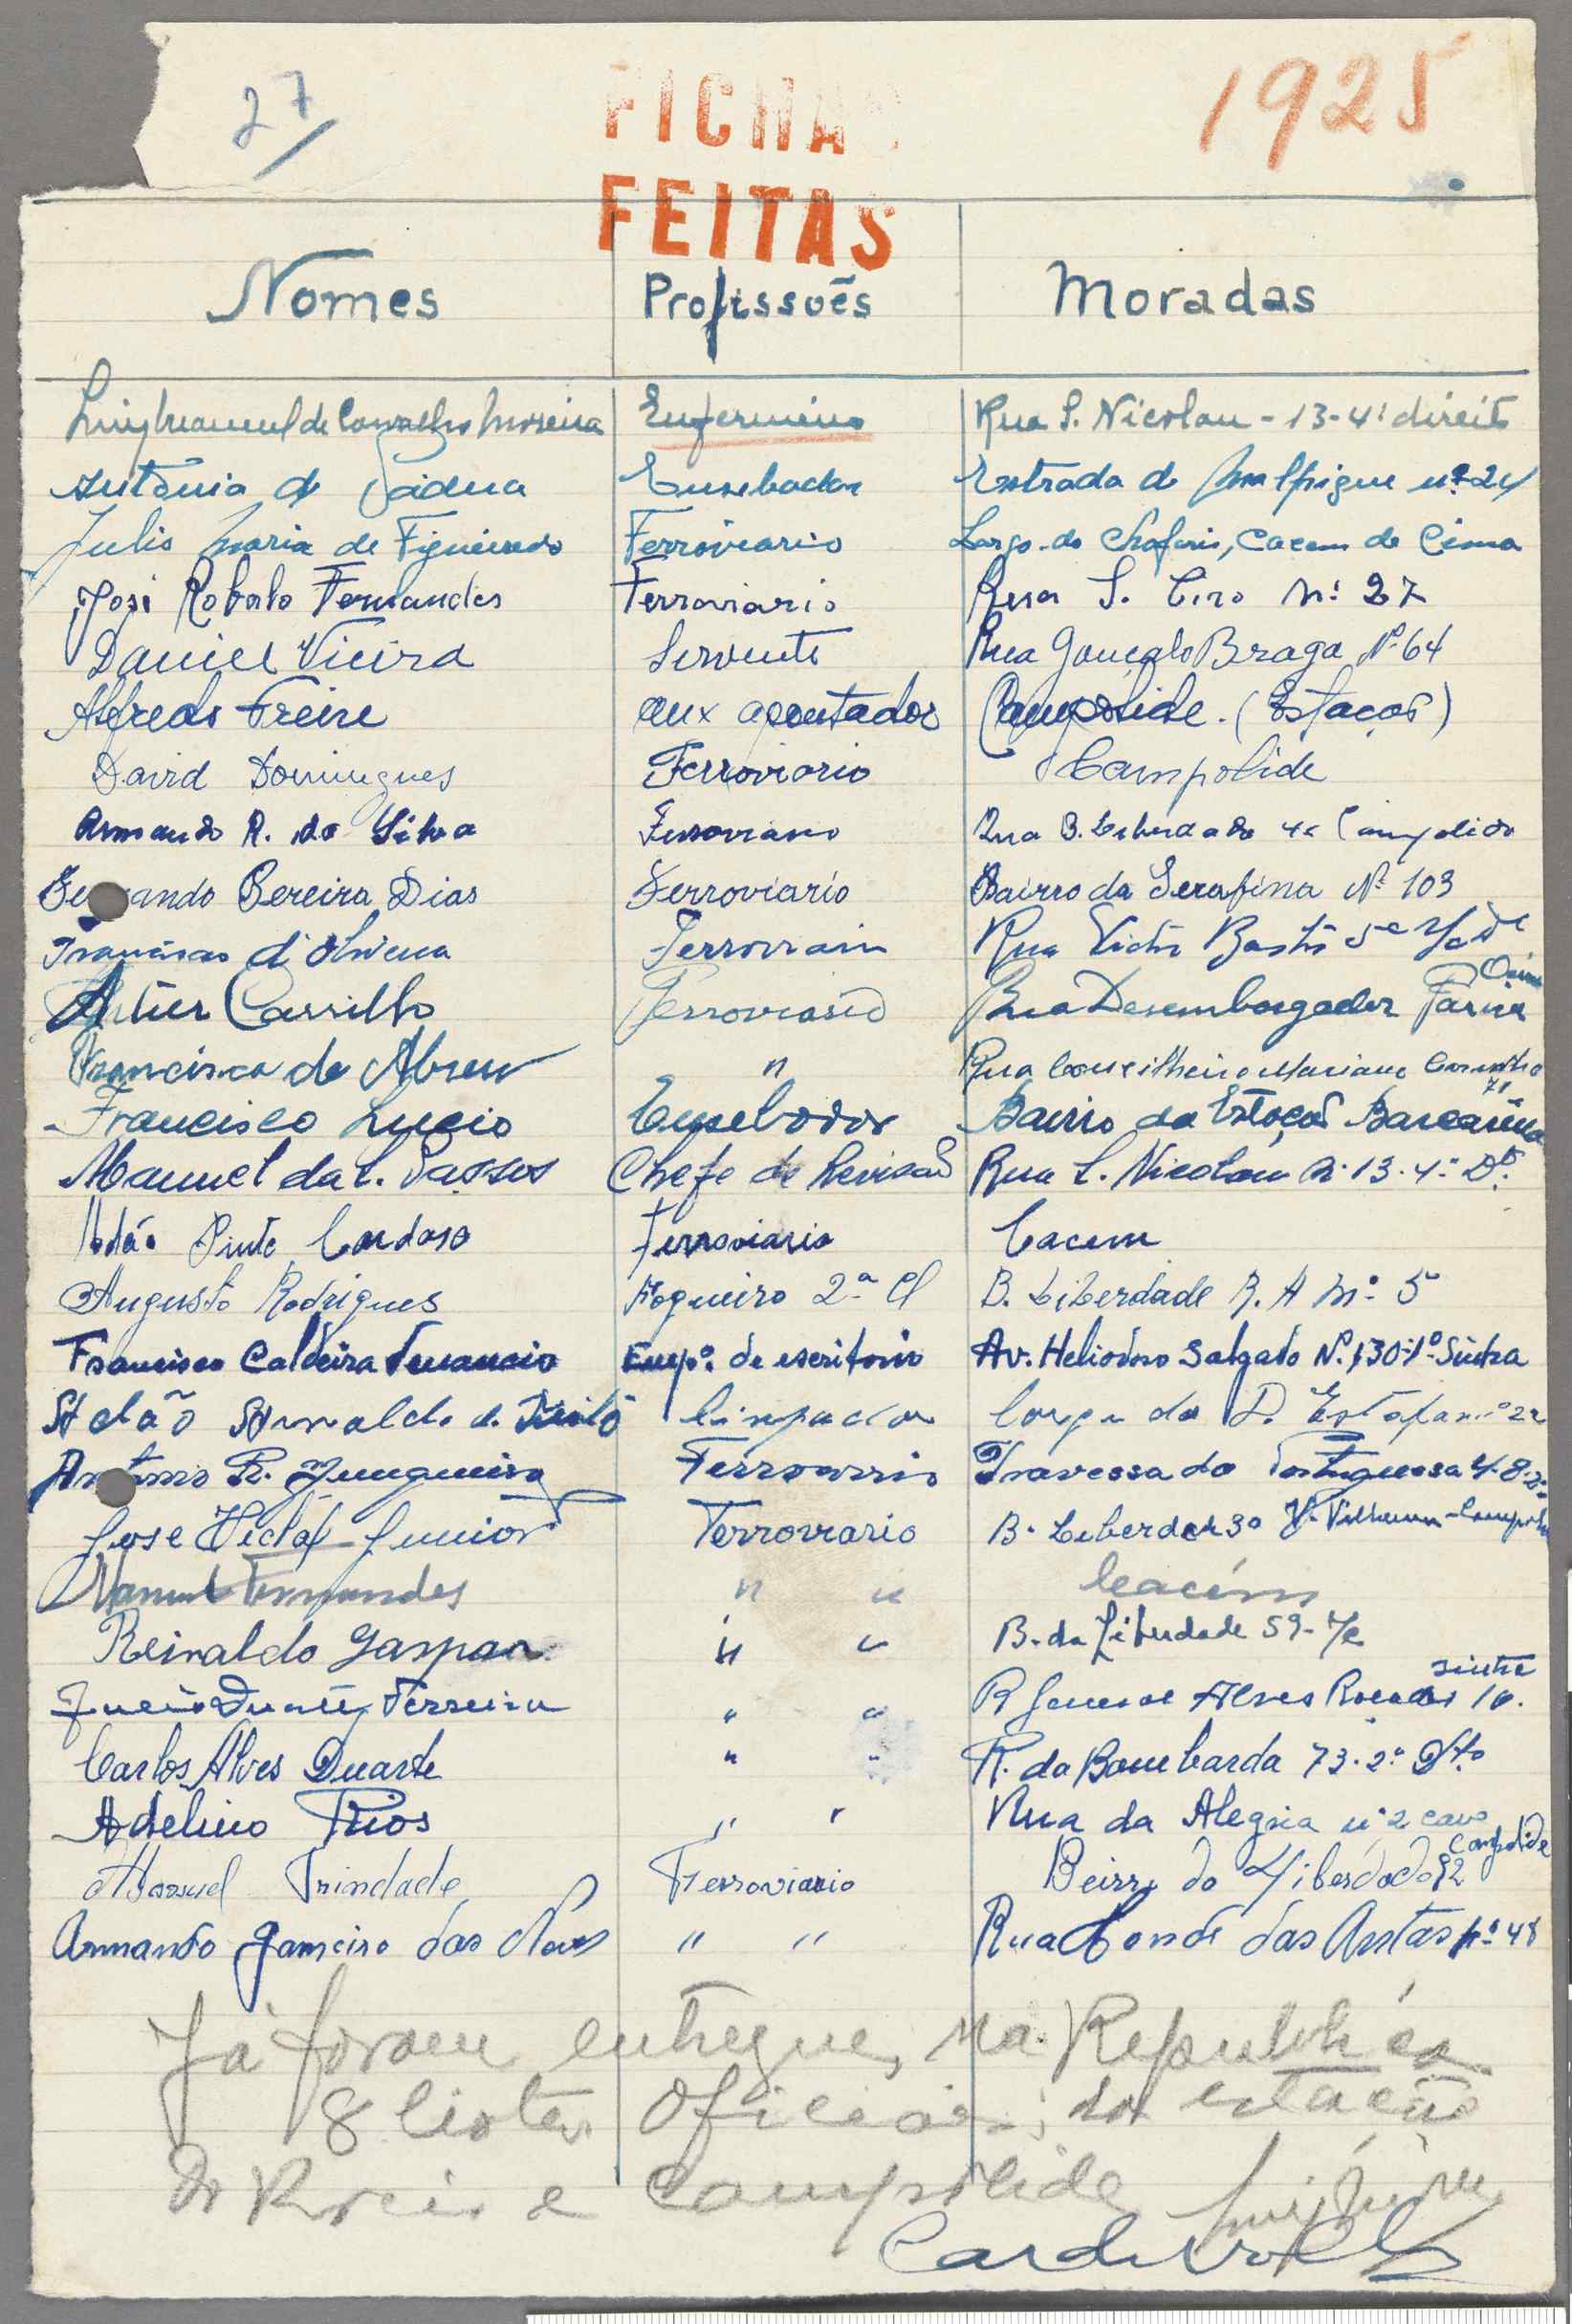 27
1925
FICHAS
FEITAS
Nomes Profissões Moradas
Luiz Manuel de Carvalho Moreira Enfermeiro Rua S. Nicolau - 13-4º direito
António de Pádua Ensebador Estrada de nº 24
Julio Maria de Figueiredo Ferroviario Largo do Chafariz, Cacem de Cima
José Roberto Fernandes Ferroviario Rua S. Ciro Nº 27
Daniel Vieira Servente Rua Gonçalo Braga Nº 64
Alfredo Freire aux apontador Campolide. (Estação)
David Domingues Ferroviario Campolide
Armando R. da Silva Ferroviario Rua B. Liberdade Campolide
Fernando Pereira Dias Ferroviario Bairro da Serafina Nº 103
Francisco d'Oliveira Ferroviario Rua Victor Bastos
Artur Carrilho Ferroviario Rua Desembargador Faria
Francisco de Abreu " Rua Conselheiro Mariano Carvalho
Francisco Lucio Ensebador Bairro da Estação Barcarena
Manuel da C. Passos Chefe de Revisão Rua S. Nicolau Nº 13-4º Dº.
Adão Pinto Cardoso Ferroviario Cacem
Augusto Rodrigues Fogueiro 2ª Cl B. Liberdade R. A Nº 5
Francisco Caldeira Venancio Empº. de escritorio Av. Heliodoro Salgado Nº 130-1º Sintra
Adão Arnaldo de Limpador Largo da D. Estefania 22
António R. Junqueira Ferroviario Travessa da Portuguesa 48-2º
Jose Vidal Junior Ferroviario B. Liberdade
Manuel Fernandes " " Cacém
Reinaldo Gaspar " " B. da Liberdade 59- r/c
Duarte Ferreira " " R General Alves Roçadas 10. Sintra
Carlos Alves Duarte " " R. da Bombarda 73-2º Dto
Adelino Rios " " Rua da Alegria nº 2 cave
Campolide
Manuel Trindade Ferroviario Beirro da Liberdade 92
Armando Gameiro das Neves " " Rua Conde das Antas Nº 48
Já foram entregues, na República
8 listas Oficiais; da estação
do Rocio e Campolide